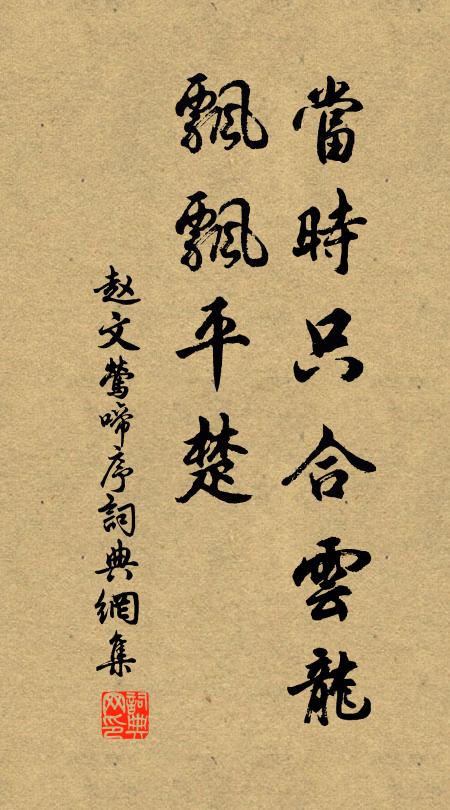 當時只合雲龍
飄飄平楚
赵文鶯啼序詞典網集
詞典网印